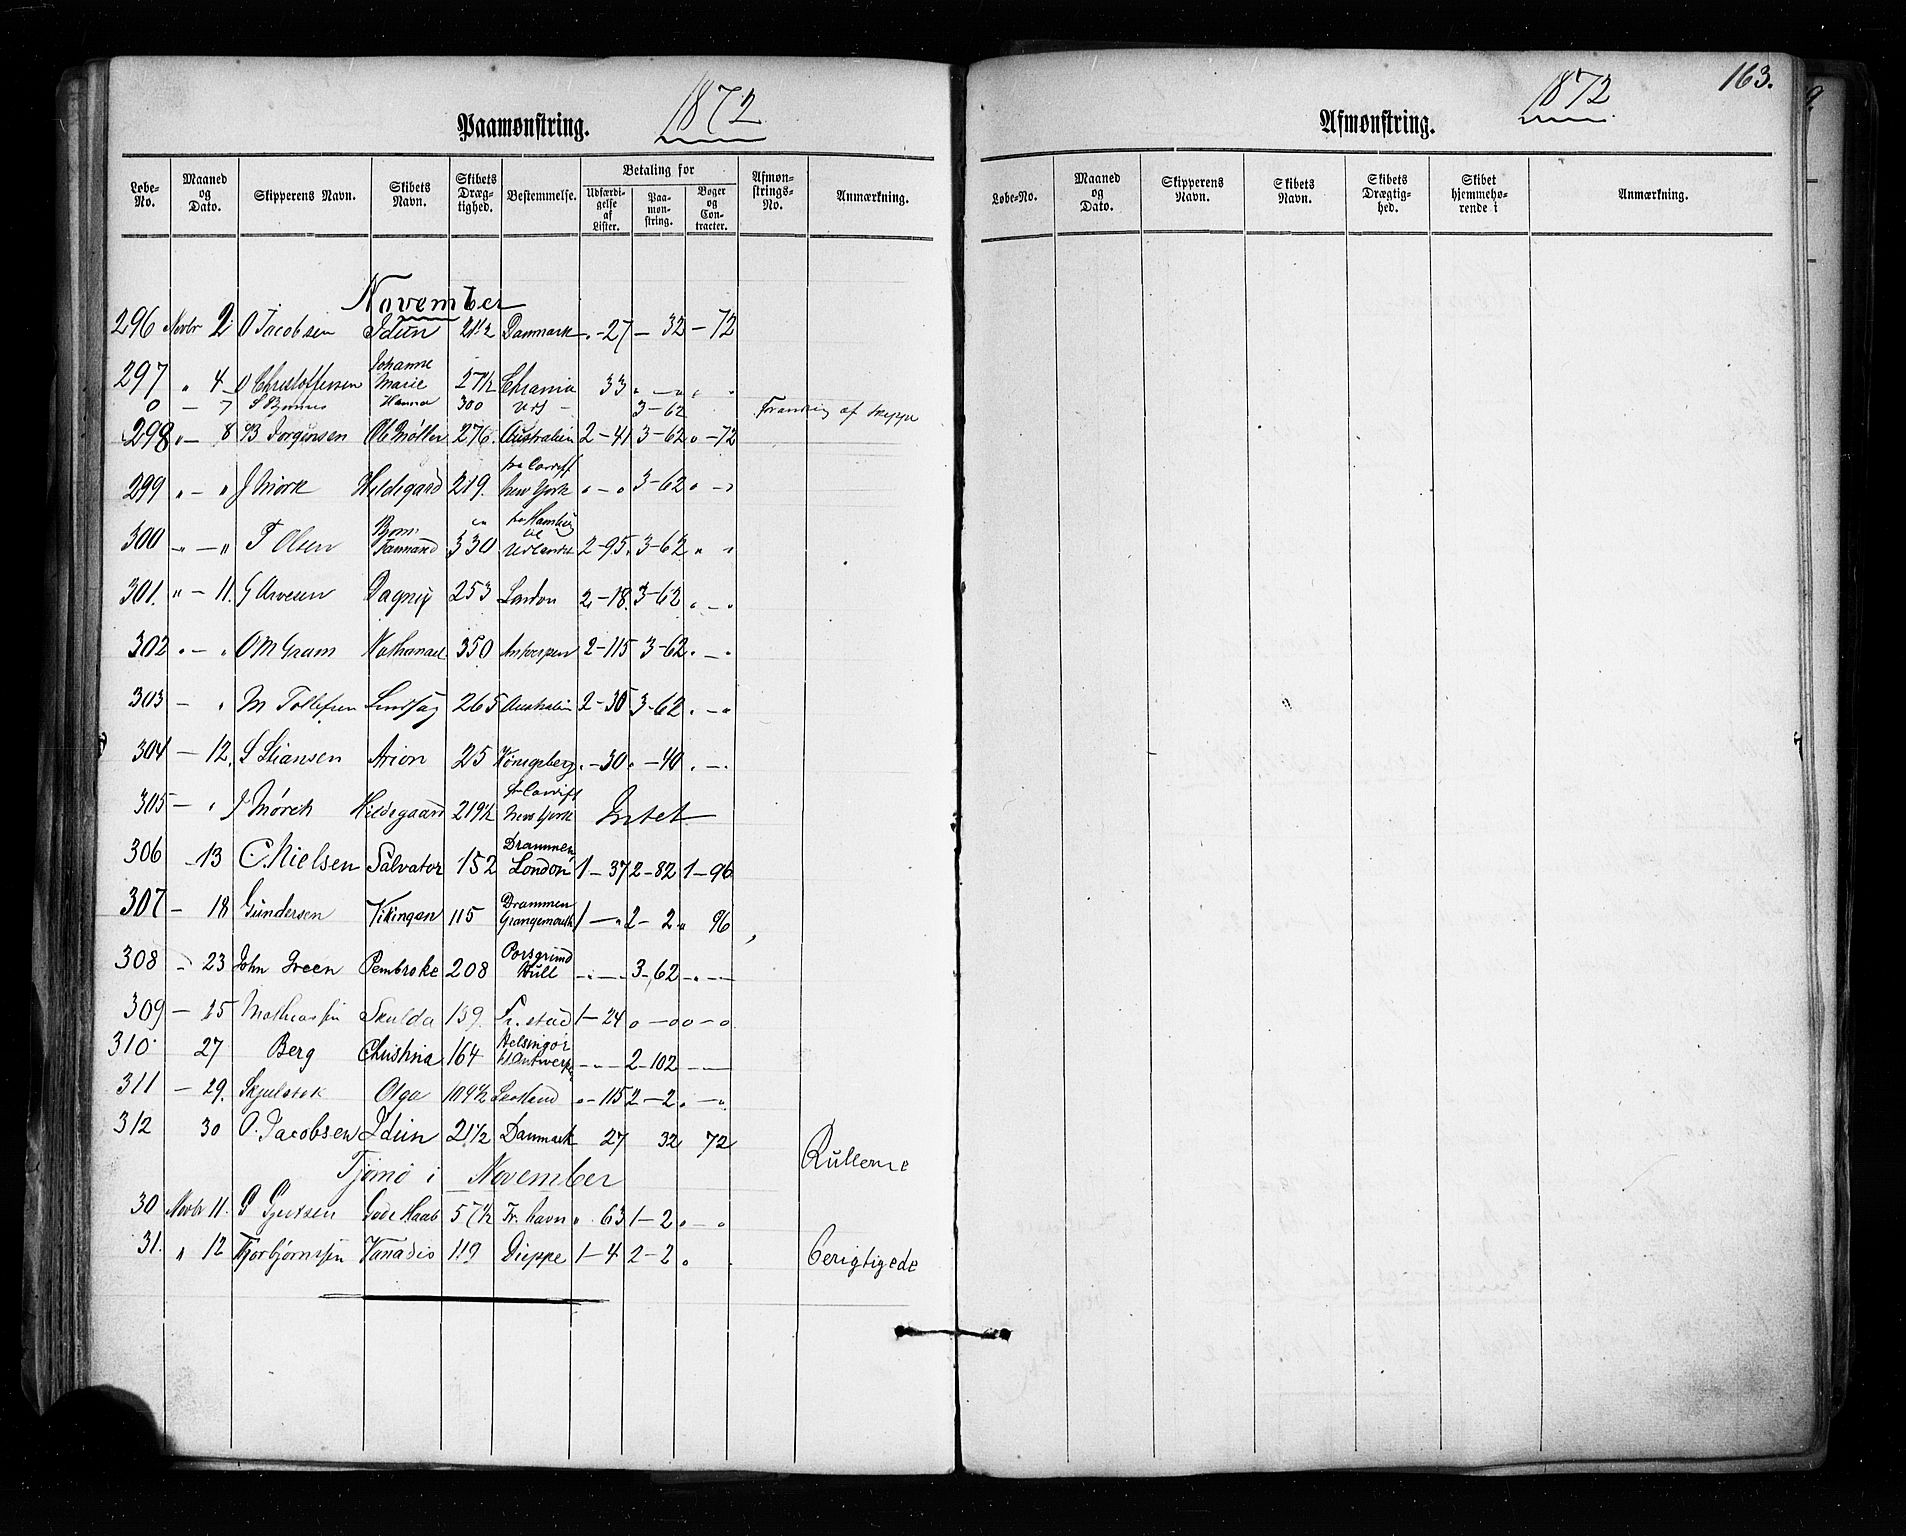 Paamønstring. 1872
Løbe-No. | Maaned og Dato. | Skipperens Navn. | Skibets Navn. | Skibets Drægtighed. | Bestemmelse. | Betaling for | Udfærdigelse af Lister. | Paamønstring. | Bøger og Contracter. | Afmønstrings-No. | Anmærkning.
November
296 Novbr 2 O Jacobsen Idun 21 1/2 Danmark " - 27 - 32 - 72
297 " 4 O Christoffersen Johanne Marie 27 1/2 Chrania 33 " - " " "
0 - 7 Hanna 300 Uds - 3-62 Forandring af Skipper
298 " - 8 B Jørgensen Ole Møller 276. Australien 2-41 3-62 " - 72
299 " - " J Mørk Hildegaard 219. fra Cardiff New York " - " 3-62 " - "
300 " - " T Olsen Bjørn Farmand 330 fra Hamburg til Udlandet 2-95. 3-62 " "
301. " - 11. G Arvesen Dagny 253 London 2-18. 3-62 " - "
302 " - " O M Gram Nathanael 350 Antverpen 2-115 3-62 " - "
303 - " M Tollefsen Lindsay 265 Australien 2-30 3-62 " - "
304 - 12. S Stiansen Arion 25 Kønigsberg " - 30 " - 40 " - "
305 - " J Mørch Hildegaard 219 1/2 fra Cardiff New York Intet
306 - 13 C. Nielsen Salvator 152 Drammen London 1-37 2-82 1-96
307 - 18 Gundersen Vikingen 115 Drammen Grangemouth 1 - " 2-2 " 96
308 - 23 John Green Pembroke 208 Porsgrund Hull - " - 3-62 - " -
309 - 25 Mathiassen Skulda 139. Fr. stad 1-24 0-0 0-0
310 27 Berg Christina 164 Helsingør Antwerp - " - 2-102 - -
311 - 29. Skjelstok Olga 109 1/2 Skotland " - 115 2-2 " - "
312 30 O. Jacobsen Idun 21 1/2 Danmark 27 32 72
Rullerne
Tjømø i November
30 Novbr 11. Gode Haab 57 1/2 Fr. havn " 63 1-2 " - "
31. " 12 Thorbjørnssen Vanadis 119 Dieppe 1-4 2-2 " "
berigtigede
163.
Afmønstring. 1872
Løbe-No. | Maaned og Dato. | Skipperens Navn. | Skibets Navn. | Skibets Drægtighed. | Skibet hjemmehørende i | Anmærkning.